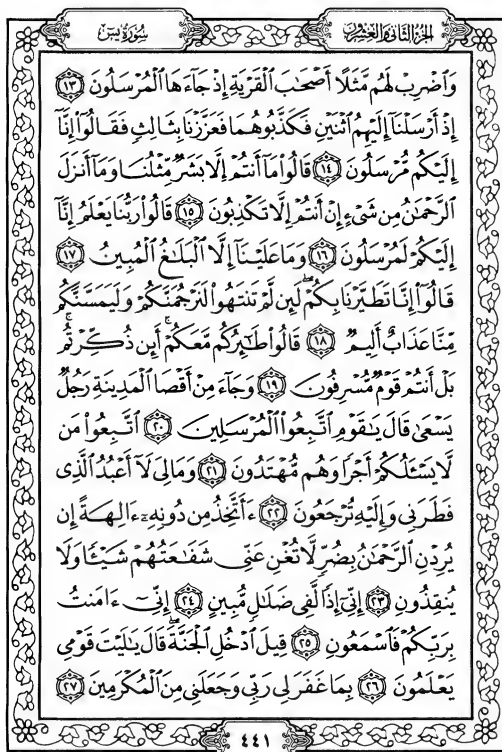 الجزء الثاني والعشرون
سورة يس
وَٱضْرِبْ لَهُم مَّثَلًا أَصْحَٰبَ ٱلْقَرْيَةِ إِذْ جَآءَهَا ٱلْمُرْسَلُونَ ١٣
إِذْ أَرْسَلْنَآ إِلَيْهِمُ ٱثْنَيْنِ فَكَذَّبُوهُمَا فَعَزَّزْنَا بِثَالِثٍ فَقَالُوٓا۟ إِنَّآ
إِلَيْكُم مُّرْسَلُونَ ١٤ قَالُوا۟ مَآ أَنتُمْ إِلَّا بَشَرٌ مِّثْلُنَا وَمَآ أَنزَلَ
ٱلرَّحْمَٰنُ مِن شَىْءٍ إِنْ أَنتُمْ إِلَّا تَكْذِبُونَ ١٥ قَالُوا۟ رَبُّنَا يَعْلَمُ إِنَّآ
إِلَيْكُمْ لَمُرْسَلُونَ ١٦ وَمَا عَلَيْنَآ إِلَّا ٱلْبَلَٰغُ ٱلْمُبِينُ ١٧
قَالُوٓا۟ إِنَّا تَطَيَّرْنَا بِكُمْ ۖ لَئِن لَّمْ تَنتَهُوا۟ لَنَرْجُمَنَّكُمْ وَلَيَمَسَّنَّكُم
مِّنَّا عَذَابٌ أَلِيمٌ ١٨ قَالُوا۟ طَٰٓئِرُكُم مَّعَكُمْ ۚ أَئِن ذُكِّرْتُم ۚ
بَلْ أَنتُمْ قَوْمٌ مُّسْرِفُونَ ١٩ وَجَآءَ مِنْ أَقْصَا ٱلْمَدِينَةِ رَجُلٌ
يَسْعَىٰ قَالَ يَٰقَوْمِ ٱتَّبِعُوا۟ ٱلْمُرْسَلِينَ ٢٠ ٱتَّبِعُوا۟ مَن
لَّا يَسْـَٔلُكُمْ أَجْرًا وَهُم مُّهْتَدُونَ ٢١ وَمَالِىَ لَآ أَعْبُدُ ٱلَّذِى
فَطَرَنِى وَإِلَيْهِ تُرْجَعُونَ ٢٢ ءَأَتَّخِذُ مِن دُونِهِۦٓ ءَالِهَةً إِن
يُرِدْنِ ٱلرَّحْمَٰنُ بِضُرٍّ لَّا تُغْنِ عَنِّى شَفَٰعَتُهُمْ شَيْـًٔا وَلَا
يُنقِذُونِ ٢٣ إِنِّىٓ إِذًا لَّفِى ضَلَٰلٍ مُّبِينٍ ٢٤ إِنِّىٓ ءَامَنتُ
بِرَبِّكُمْ فَٱسْمَعُونِ ٢٥ قِيلَ ٱدْخُلِ ٱلْجَنَّةَ ۖ قَالَ يَٰلَيْتَ قَوْمِى
يَعْلَمُونَ ٢٦ بِمَا غَفَرَ لِى رَبِّى وَجَعَلَنِى مِنَ ٱلْمُكْرَمِينَ ٢٧
٤٤١